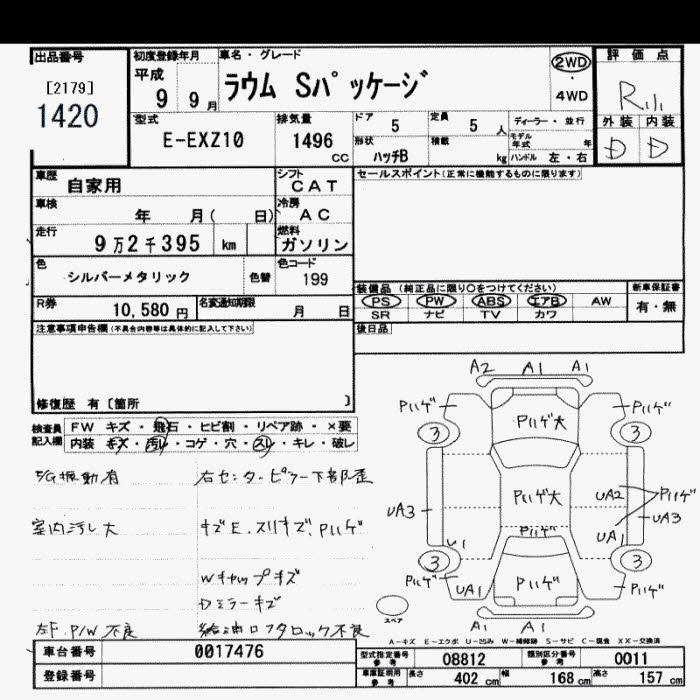 出品番号
[2179]
1420
初度登録年月
平成
9 9月
車名・グレード
ラウム Sパッケージ
2WD
・
4WD
評価点
R
外装 内装
D D
型式
E-EXZ10
排気量
1496
cc
ドア
5
定員
5 人
ディーラー・並行
モデル年式 年
形状
ハッチB
積載
kg
ハンドル 左・右
車歴
自家用
シフト
CAT
セールスポイント(正常に機能するものに限ります)
車検
年 月( 日)
冷房
AC
走行
9万2千395 km
燃料
ガソリン
色
シルバーメタリック
色替
色コード
199
装備品 (純正品に限り○をつけてください)
新車保証書
PS PW ABS エアB AW
SR ナビ TV カワ
有・無
R券
10,580 円
名変通知期限
月 日
後日品
注意事項申告欄(不具合内容等は具体的に記入して下さい)
修復歴 有〔箇所 〕
検査員記入欄
FW キズ・飛石・ヒビ割・リペア跡・×要
内装 キズ・汚れ・コゲ・穴・スレ・キレ・破レ
E/G振動有
右センターピラー下部歪
室内汚し大
キズE.スリキズ、Pハゲ
Wキャップキズ
Dミラーキズ
左F.P/W不良
給油口フタロック不良
A2 A1 A1
Pハゲ Pハゲ
3 Pハゲ大 3
UA3 Pハゲ大 UA2 Pハゲ
UA3
U1 Pハゲ UA1
3 3
Pハゲ UA1 Pハゲ Pハゲ
A1 A1
スペア
A-キズ E-エクボ U-凹み W-補修跡 S-サビ C-腐食 XX-交換済
車台番号
0017476
型式指定番号
参考
08812
類別区分番号
参考
0011
登録番号
車庫証明用
参考
長さ
402 cm
幅
168 cm
高さ
157 cm